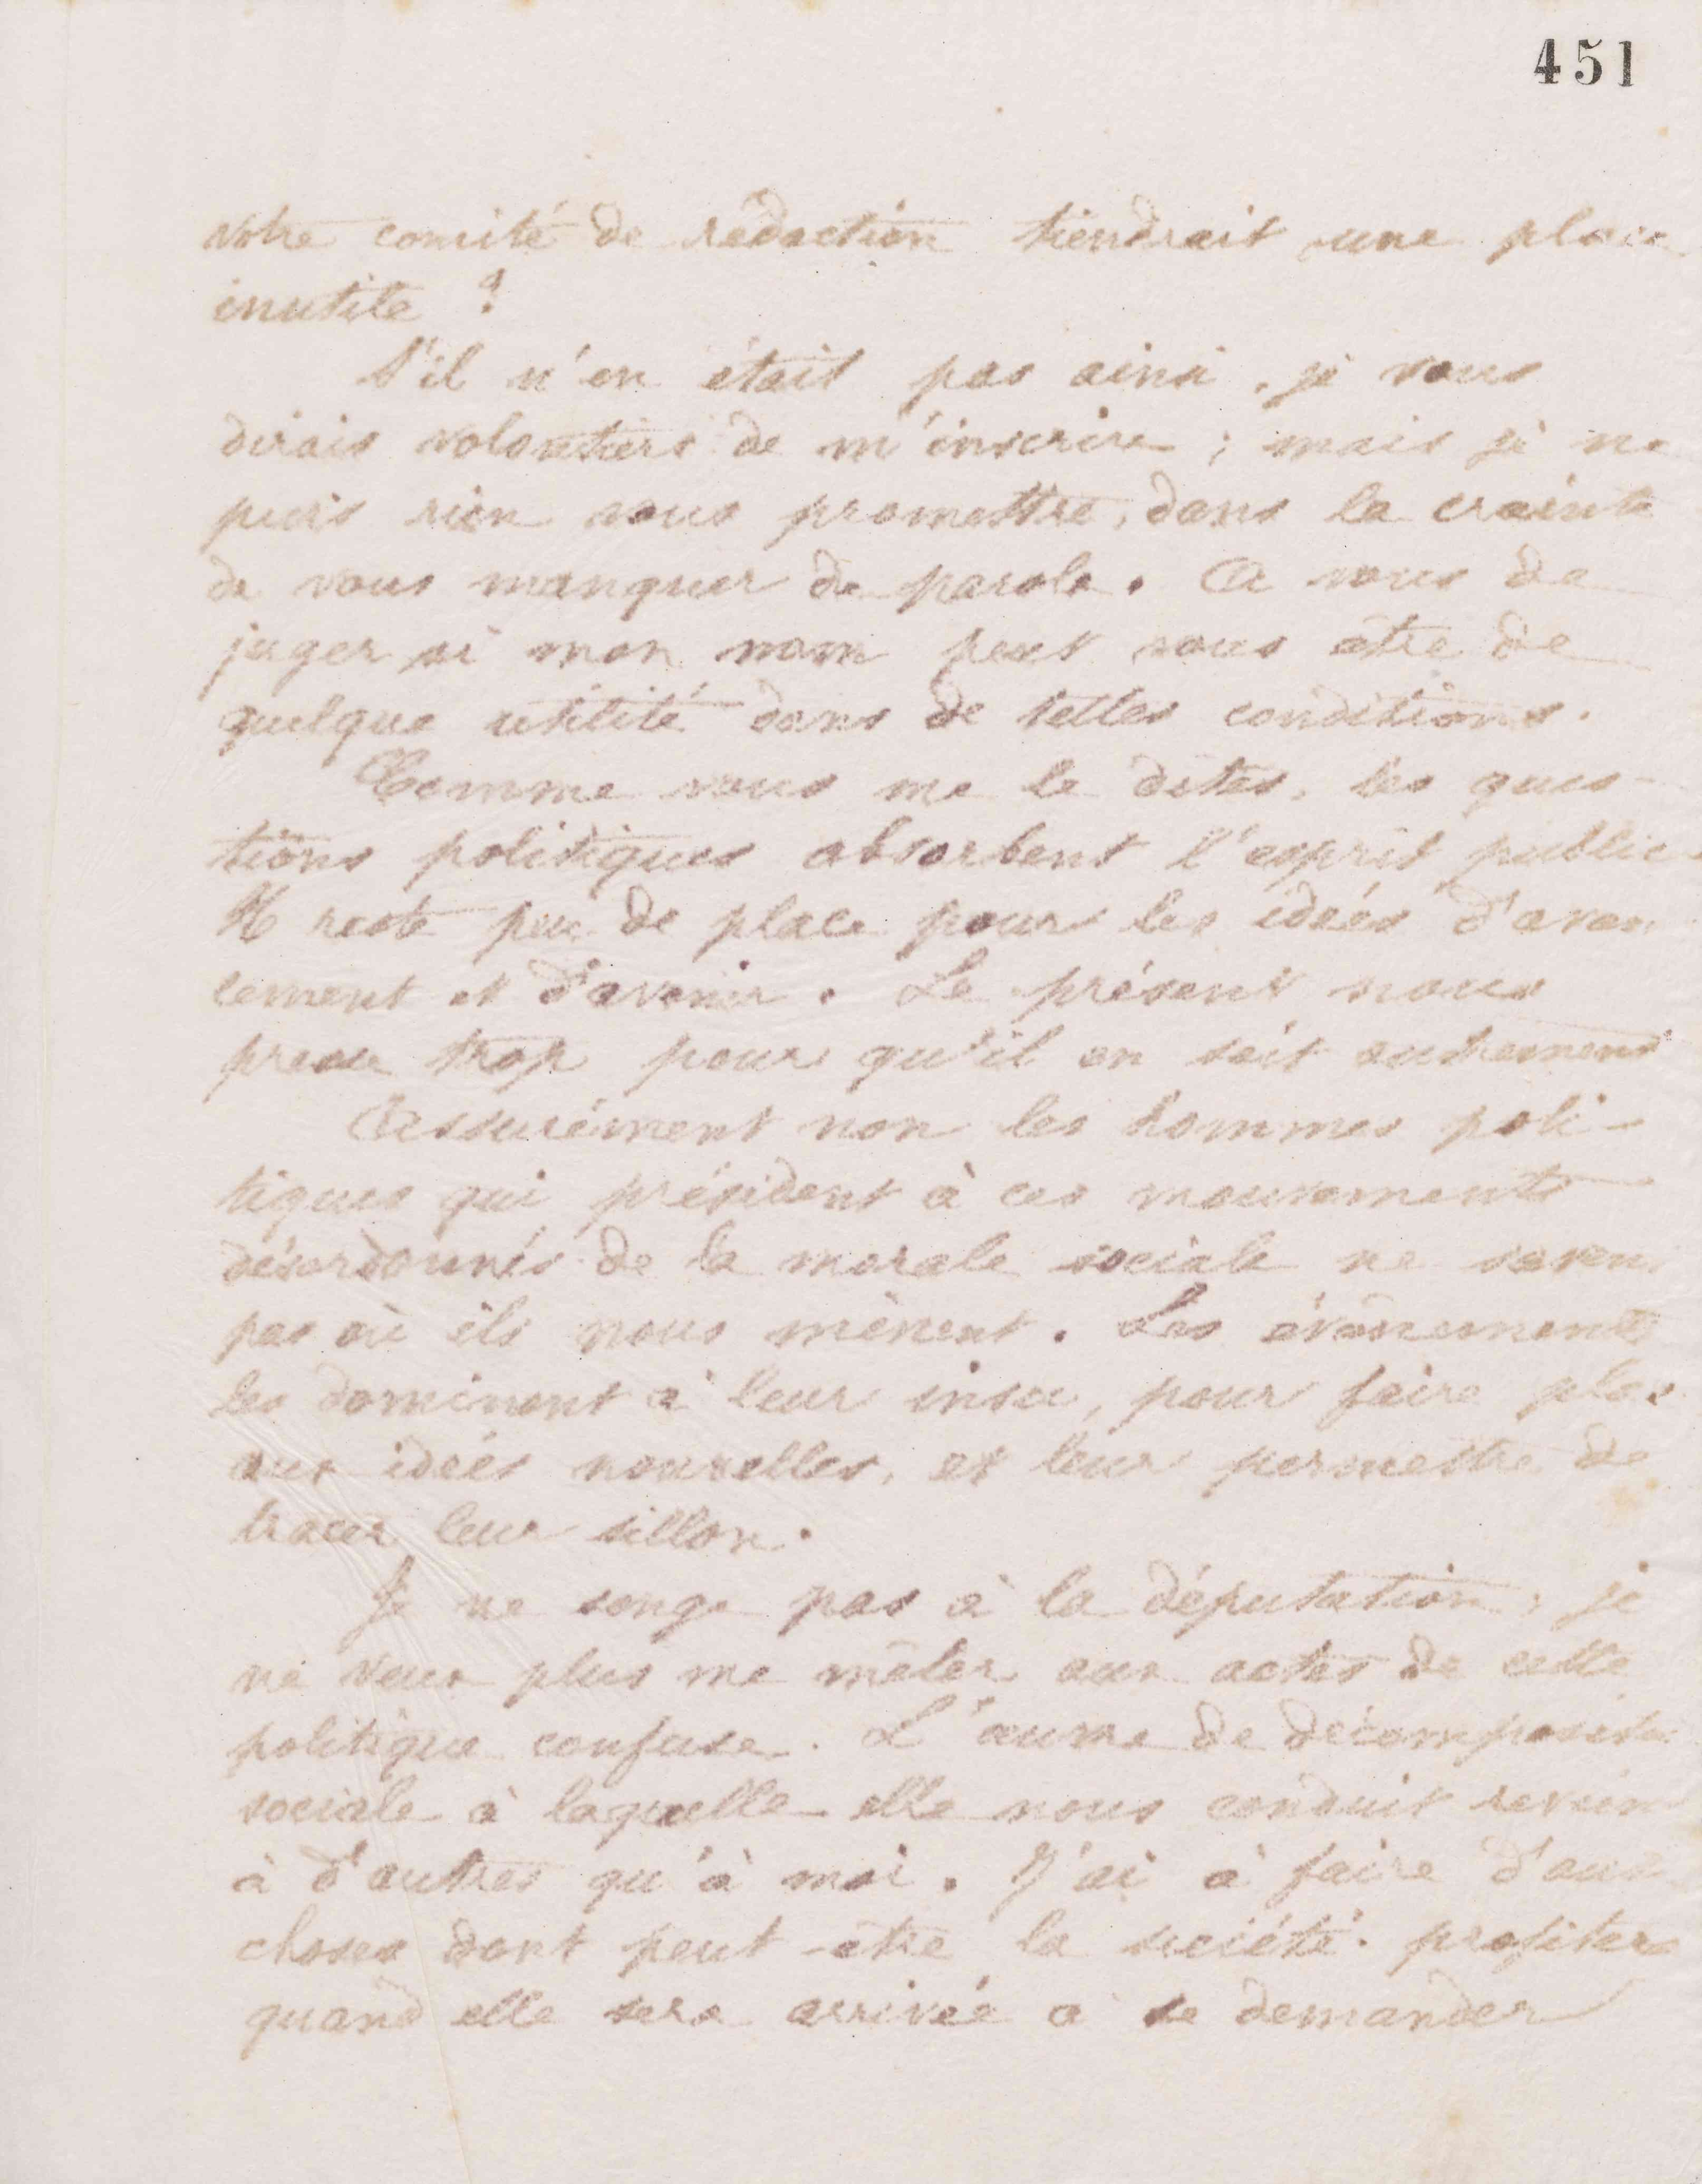 451
votre comité de rédaction tiendrait une place
inutile ?
S'il n'en était pas ainsi, je vous
dirais volontiers de m'inscrire ; mais je ne
puis rien vous promettre, dans la crainte
de vous manquer de parole. A vous de
juger si mon nom peut vous être de
quelque utilité dans de telles conditions.
Comme vous me le dites, les ques-
tions politiques absorbent l'esprit public
Il reste peu de place pour les idées d'avan
cement et d'avenir. Le présent nous
presse trop pour qu'il en soit autrement
Assurément non les hommes poli-
tiques qui président à ces mouvements
désordonnés de la morale sociale ne saven
pas où ils nous mènent. Les évènements
les dominent à leur insu, pour faire plac
aux idées nouvelles, et leur permettre de
tracer leur sillon.
Je ne songe pas à la députation, je
ne veux plus me mêler aux actes de cette
politique confuse. L'œuvre de décompositio
sociale à laquelle elle nous conduit revien
à d'autres qu'à moi. J'ai à faire d'autr
choses dont peut-être la société profitera
quand elle sera arrivée à se demander